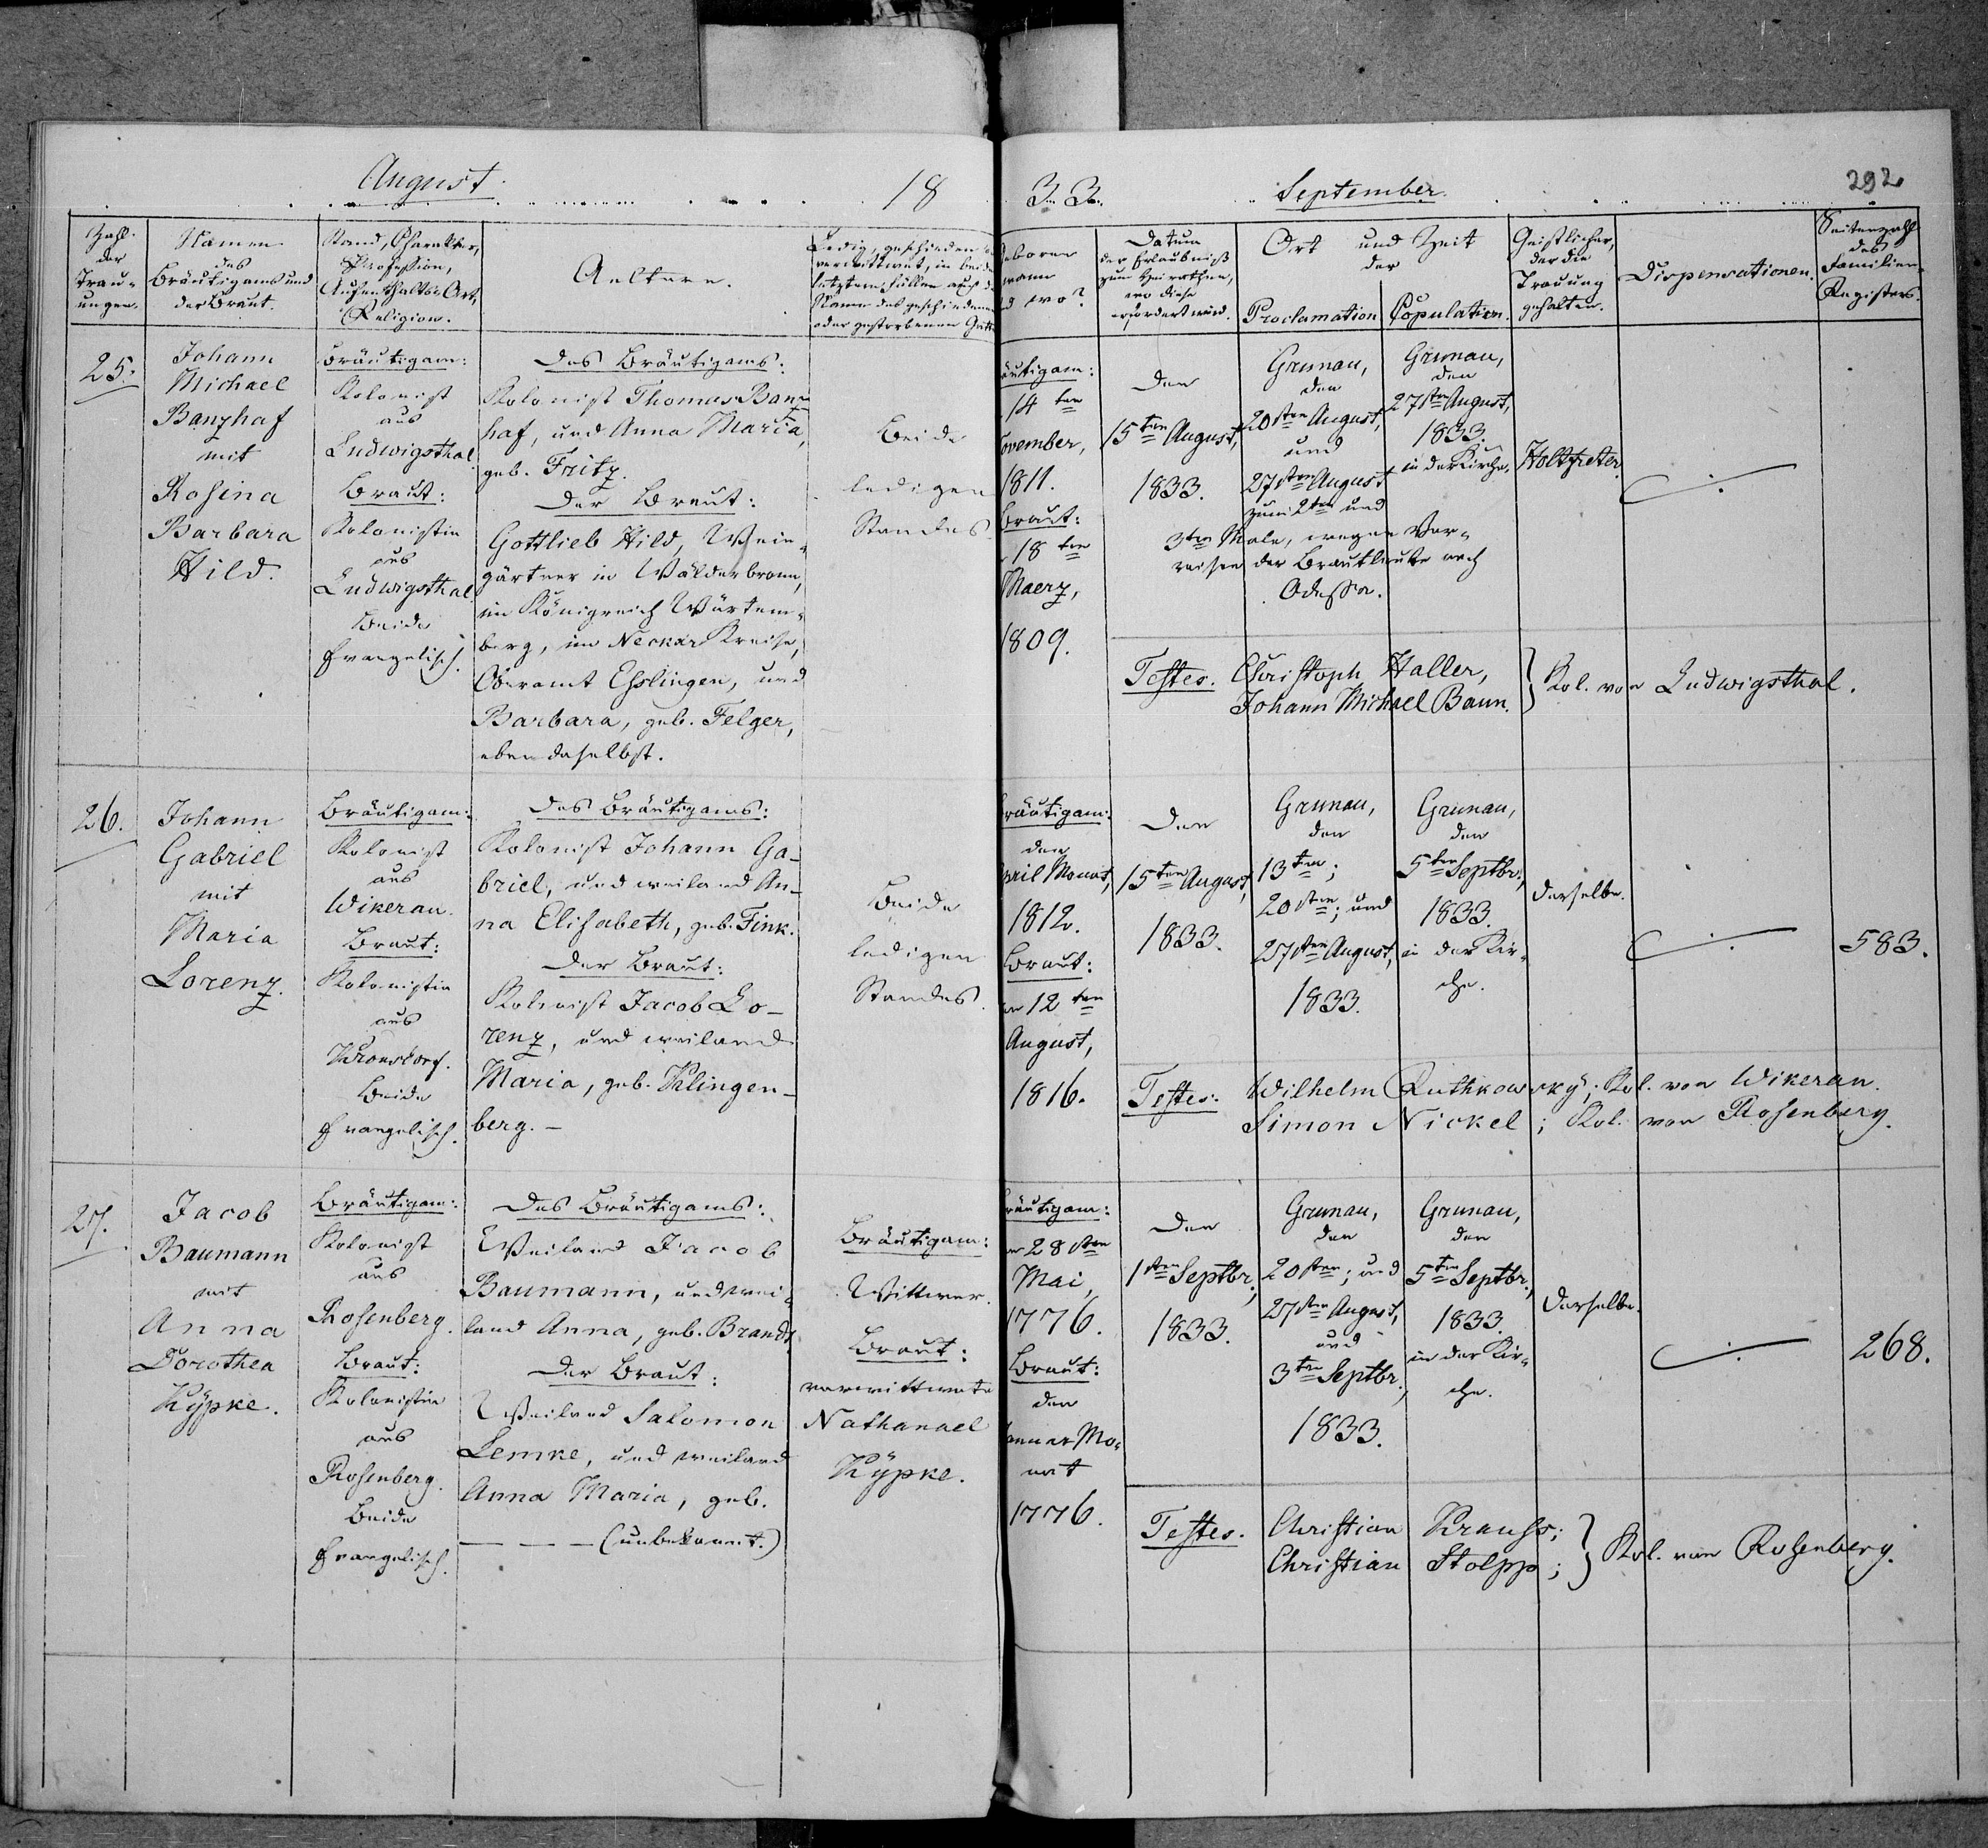 August. 18
33. September. 292
Zahl
der
Trau-
ungen.
Namen
des
Bräutigams und
der Braut.
Stand, Charakter,
Profession,
Aufenthalts-Ort,
Religion.
Aeltern.
Ledig, geschieden
verwittwet, in beiden
letztern Fällen auch d
Namen des geschiedenen
oder gestorbenen Gatt
eboren
wann
d wo?
Datum
der Erlaubniß
zum Heirathen,
wo diese
erfordert wird.
Ort und Zeit
der
Proclamation
Copulation.
Geistlicher,
der die
Trauung
gehalten.
Dispensationen.
Seitenzahl
des
Familien-
Registers.
25.
Johann
Michael
Banzhaf
mit
Rosina
Barbara
Hild.
Bräutigam:
Kolonist
aus
Ludwigsthal
Braut:
Kolonistin
aus
Ludwigsthal
Beide
Evangelisch.
Des Bräutigams:
Kolonist Thomas Banz-
haf, und Anna Maria,
geb. Fritz.
Der Braut:
Gottlieb Hild, Wein-
gärtner in Wälderbronn,
im Königreich Würtem-
berg, im Neckar Kreise,
Oberamt Esslingen, und
Barbara, geb. Felger,
ebendaselbst.
Beide
ledigen
Standes
äutigam:
14ten
ovember,
1811.
Braut:
18ten
Maerz,
1809.
Den
15ten August,
1833.
Grunau,
den
20sten August,
und
27sten August
zum 2ten und
3ten Male, wegen Ver-
reisen der Brautleute nach
Odessa.
Grunau,
den
27sten August,
1833.
in der Kirche.
Holtfreter
Testes. Christoph Haller,
Johann Michael Baun. } Kol. von Ludwigsthal.
26.
Johann
Gabriel
mit
Maria
Lorenz.
Bräutigam:
Kolonist
aus
Wikerau.
Braut:
Kolonistin
aus
Kronsdorf.
Beide
Evangelisch.
Des Bräutigams:
Kolonist Johann Ga-
briel, und weiland An-
na Elisabeth, geb. Fink.
Der Braut:
Kolonist Jacob Lo-
renz, und weiland
Maria, geb. Klingen-
berg. –
Beide
ledigen
Standes.
räutigam:
den
pril Monat,
1812.
Braut:
en 12ten
August,
1816.
Den
15ten August,
1833.
Grunau,
den
13ten;
20sten; und
27sten August,
1833.
Grunau,
den
5ten Septbr.,
1833.
in der Kir-
che.
Derselbe.
583.
Testes. Wilhelm Ruthkowsky; Kol. von Wikerau.
Simon Nickel; Kol. von Rosenberg.
27.
Jacob
Baumann
mit
Anna
Dorothea
Kÿpke.
Bräutigam:
Kolonist
aus
Rosenberg.
Braut:
Kolonistin
aus
Rosenberg.
Beide
Evangelisch.
Des Bräutigams:
Weiland Jacob
Baumann, und wei-
land Anna, geb. Brandt
Der Braut:
Weiland Salomon
Lemke, und weiland
Anna Maria, geb.
— — — (unbekannt.)
Bräutigam:
Wittwer.
Braut:
verwittwete
Nathanael
Kÿpke.
räutigam:
en 28sten
Mai,
1776.
Braut:
den
anuar Mo-
nat
1776.
Den
1sten Septbr.,
1833.
Grunau,
den
20sten; und
27sten August,
und
3ten Septbr.,
1833.
Grunau,
den
5ten Septbr.,
1833.
in der Kir-
che.
Derselbe.
268.
Testes. Christian Krauss;
Christian Stolpp; } Kol. von Rosenberg.